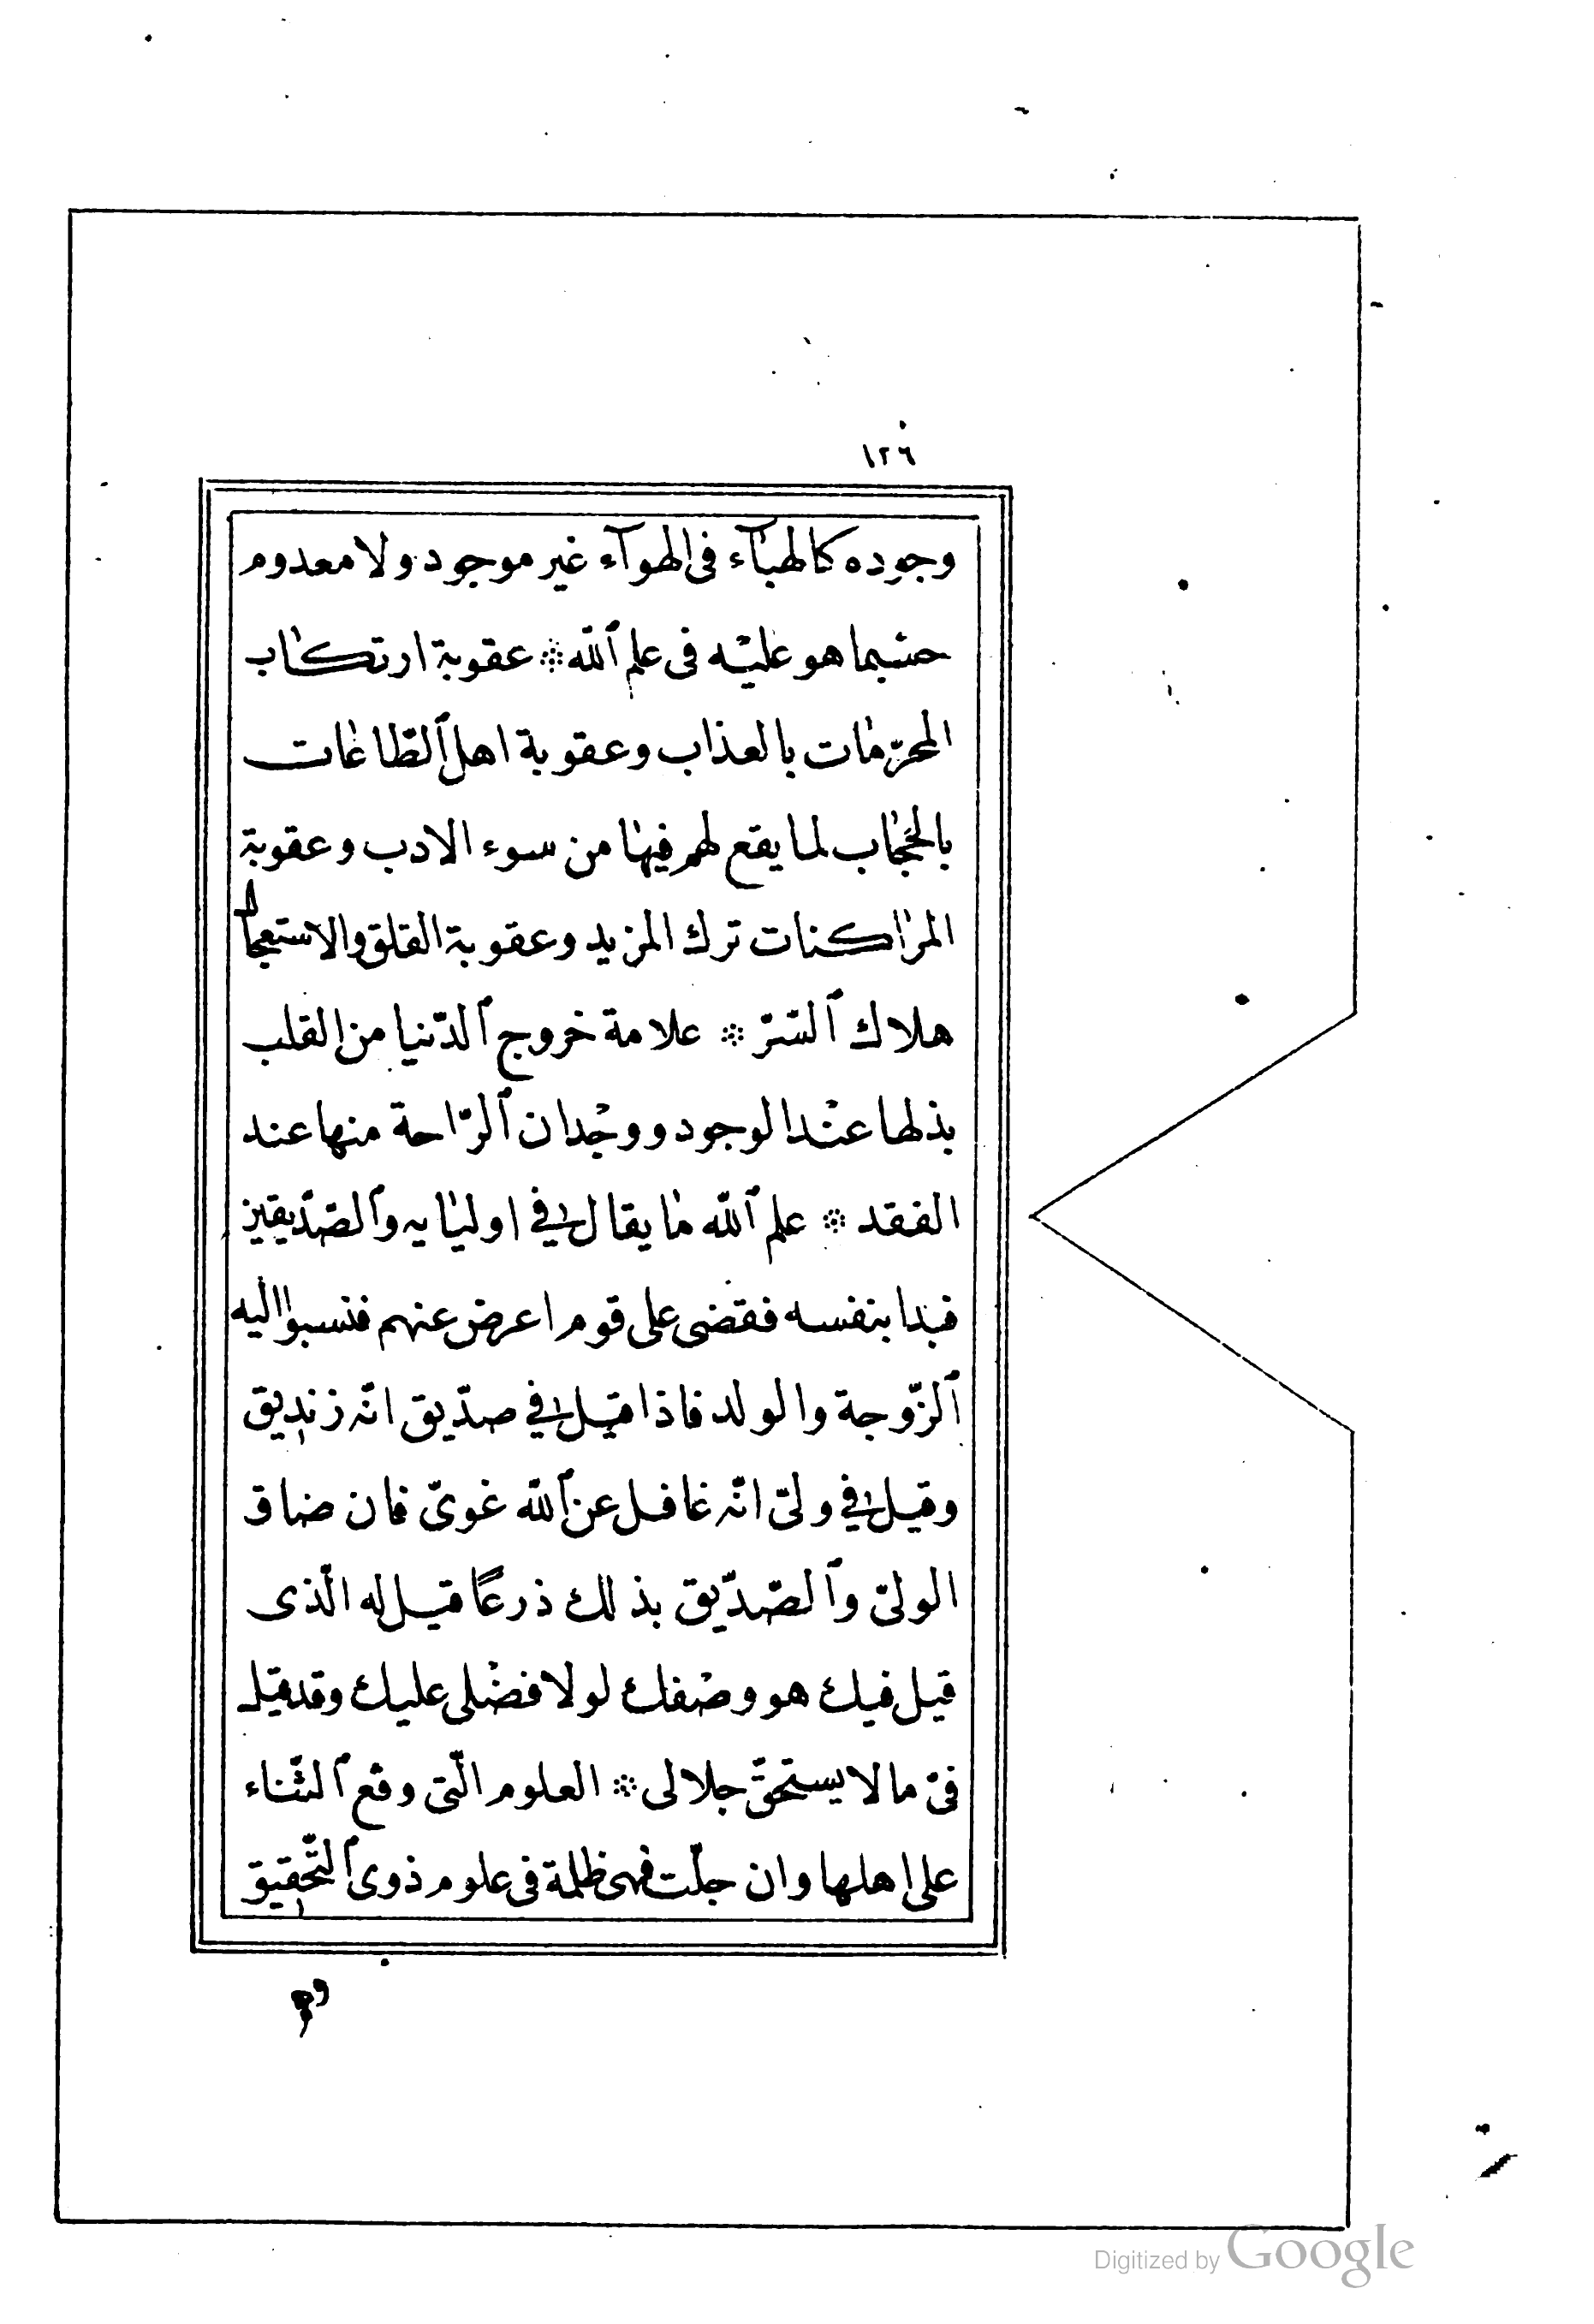 ١٢٦
وجوده كالهبآء فى الهوآء غير موجود ولا معدوم
حسبما هو عليه فى علم الله ❊ عقوبة ارتكاب
المحرّمات بالعذاب وعقوبة اهل الطّاعات
بالحجاب لما يقع لهم فيها من سوء الادب وعقوبة
المراكنات ترك المزيد وعقوبة القلق والاستعجال
هلاك السّرّ ❊ علامة خروج الدّنيا من القلب
بذلها عند الوجود ووجدان الرّاحة منها عند
الفقد ❊ علم الله ما يقال فى اوليايه والصّدّيقين
فبدا بنفسه فقضى على قوم اعرض عنهم فنسبوا اليه
الزّوجة والولد فاذا قيل فى صدّيق انّه زنديق
وقيل فى ولىّ انّه غافل عن الله غوىّ فان ضاق
الولىّ والصّدّيق بذلك ذرعًا قيل له الّذى
قيل فيك هو وصفك لولا فضلى عليك وقد قيل
فىّ ما لا يستحقّ جلالى ❊ العلوم الّتى وقع الثّناء
على اهلها وان جلّت فهى ظلمة فى علوم ذوى التّحقيق
Digitized by Google